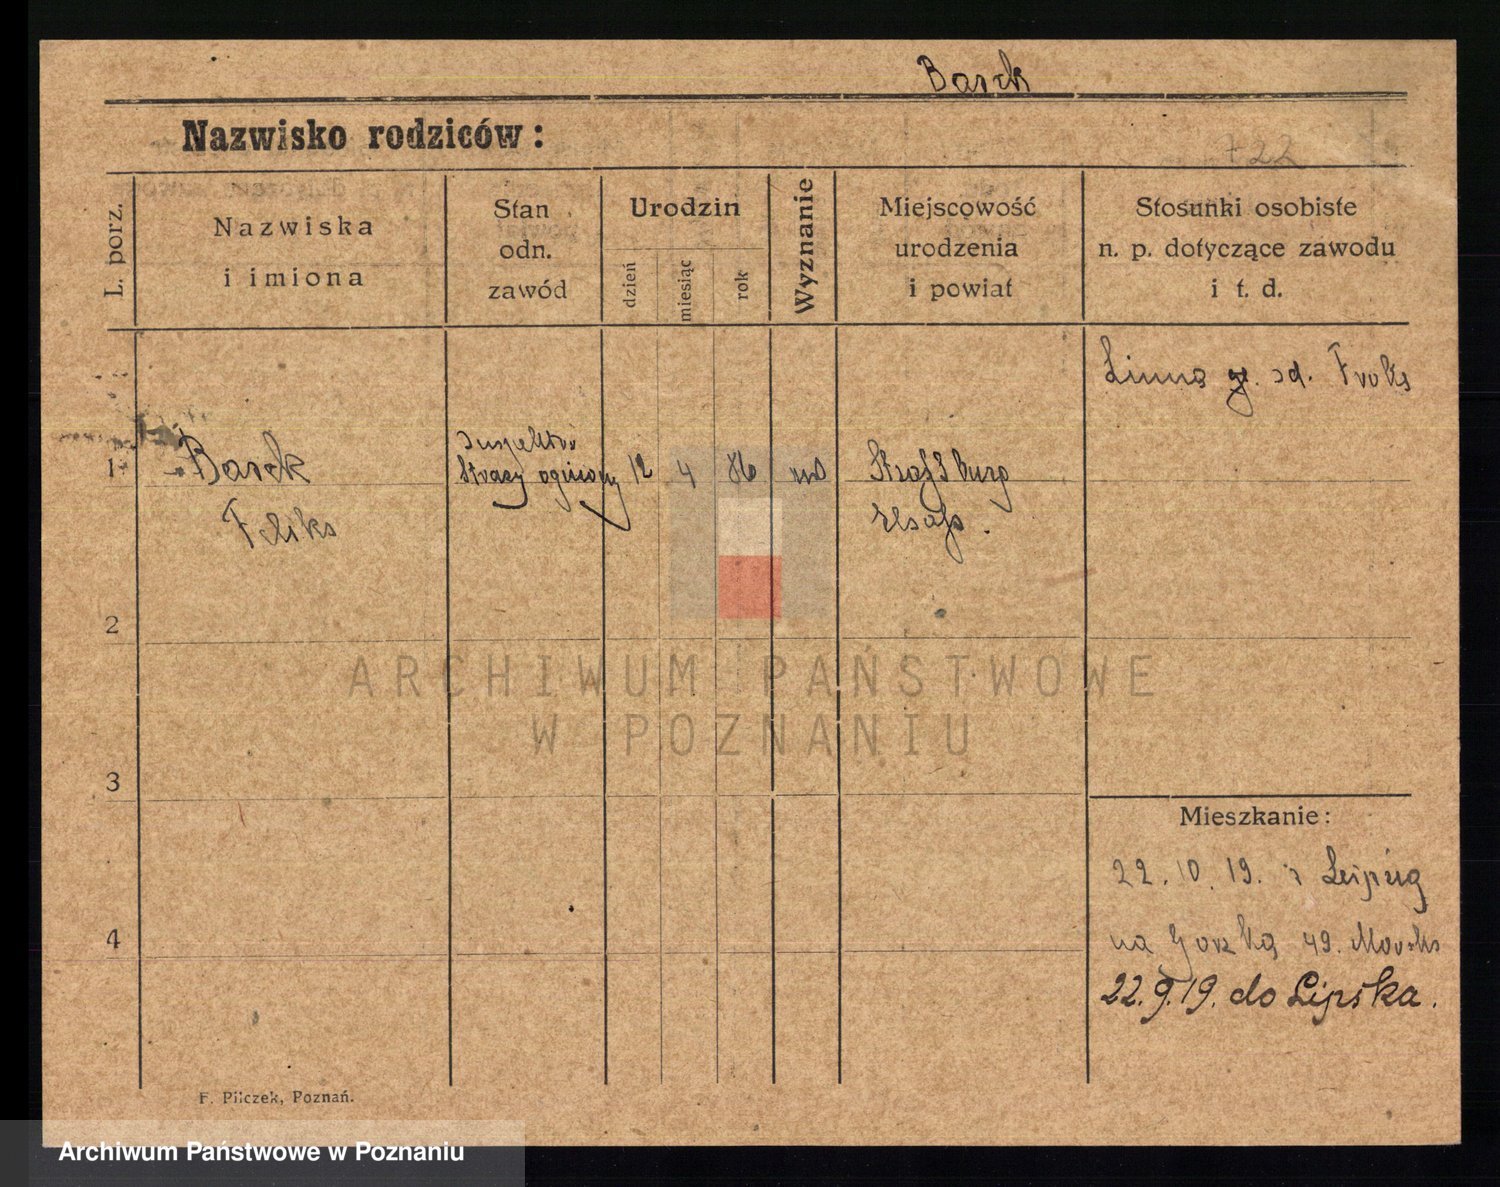 Barck
Nazwisko rodziców:
722
L. porz.
Nazwiska
i imiona
Stan
odn.
zawód
Urodzin
dzień
miesiąc
rok
Wyznanie
Miejscowość
urodzenia
i powiat
Stosunki osobiste
n. p. dotyczące zawodu
i t. d.
1
Barck
Feliks
Inspektor
Straży ogniowy
12
4
86
Straßburg
Elsaß.
od.
2
3
4
Mieszkanie:
22. 10. 19. z Leipzig
na 49.
22.9.19. do Lipska.
F. Pilczek, Poznań.
ARCHIWUM PAŃSTWOWE
W POZNANIU
Archiwum Państwowe w Poznaniu